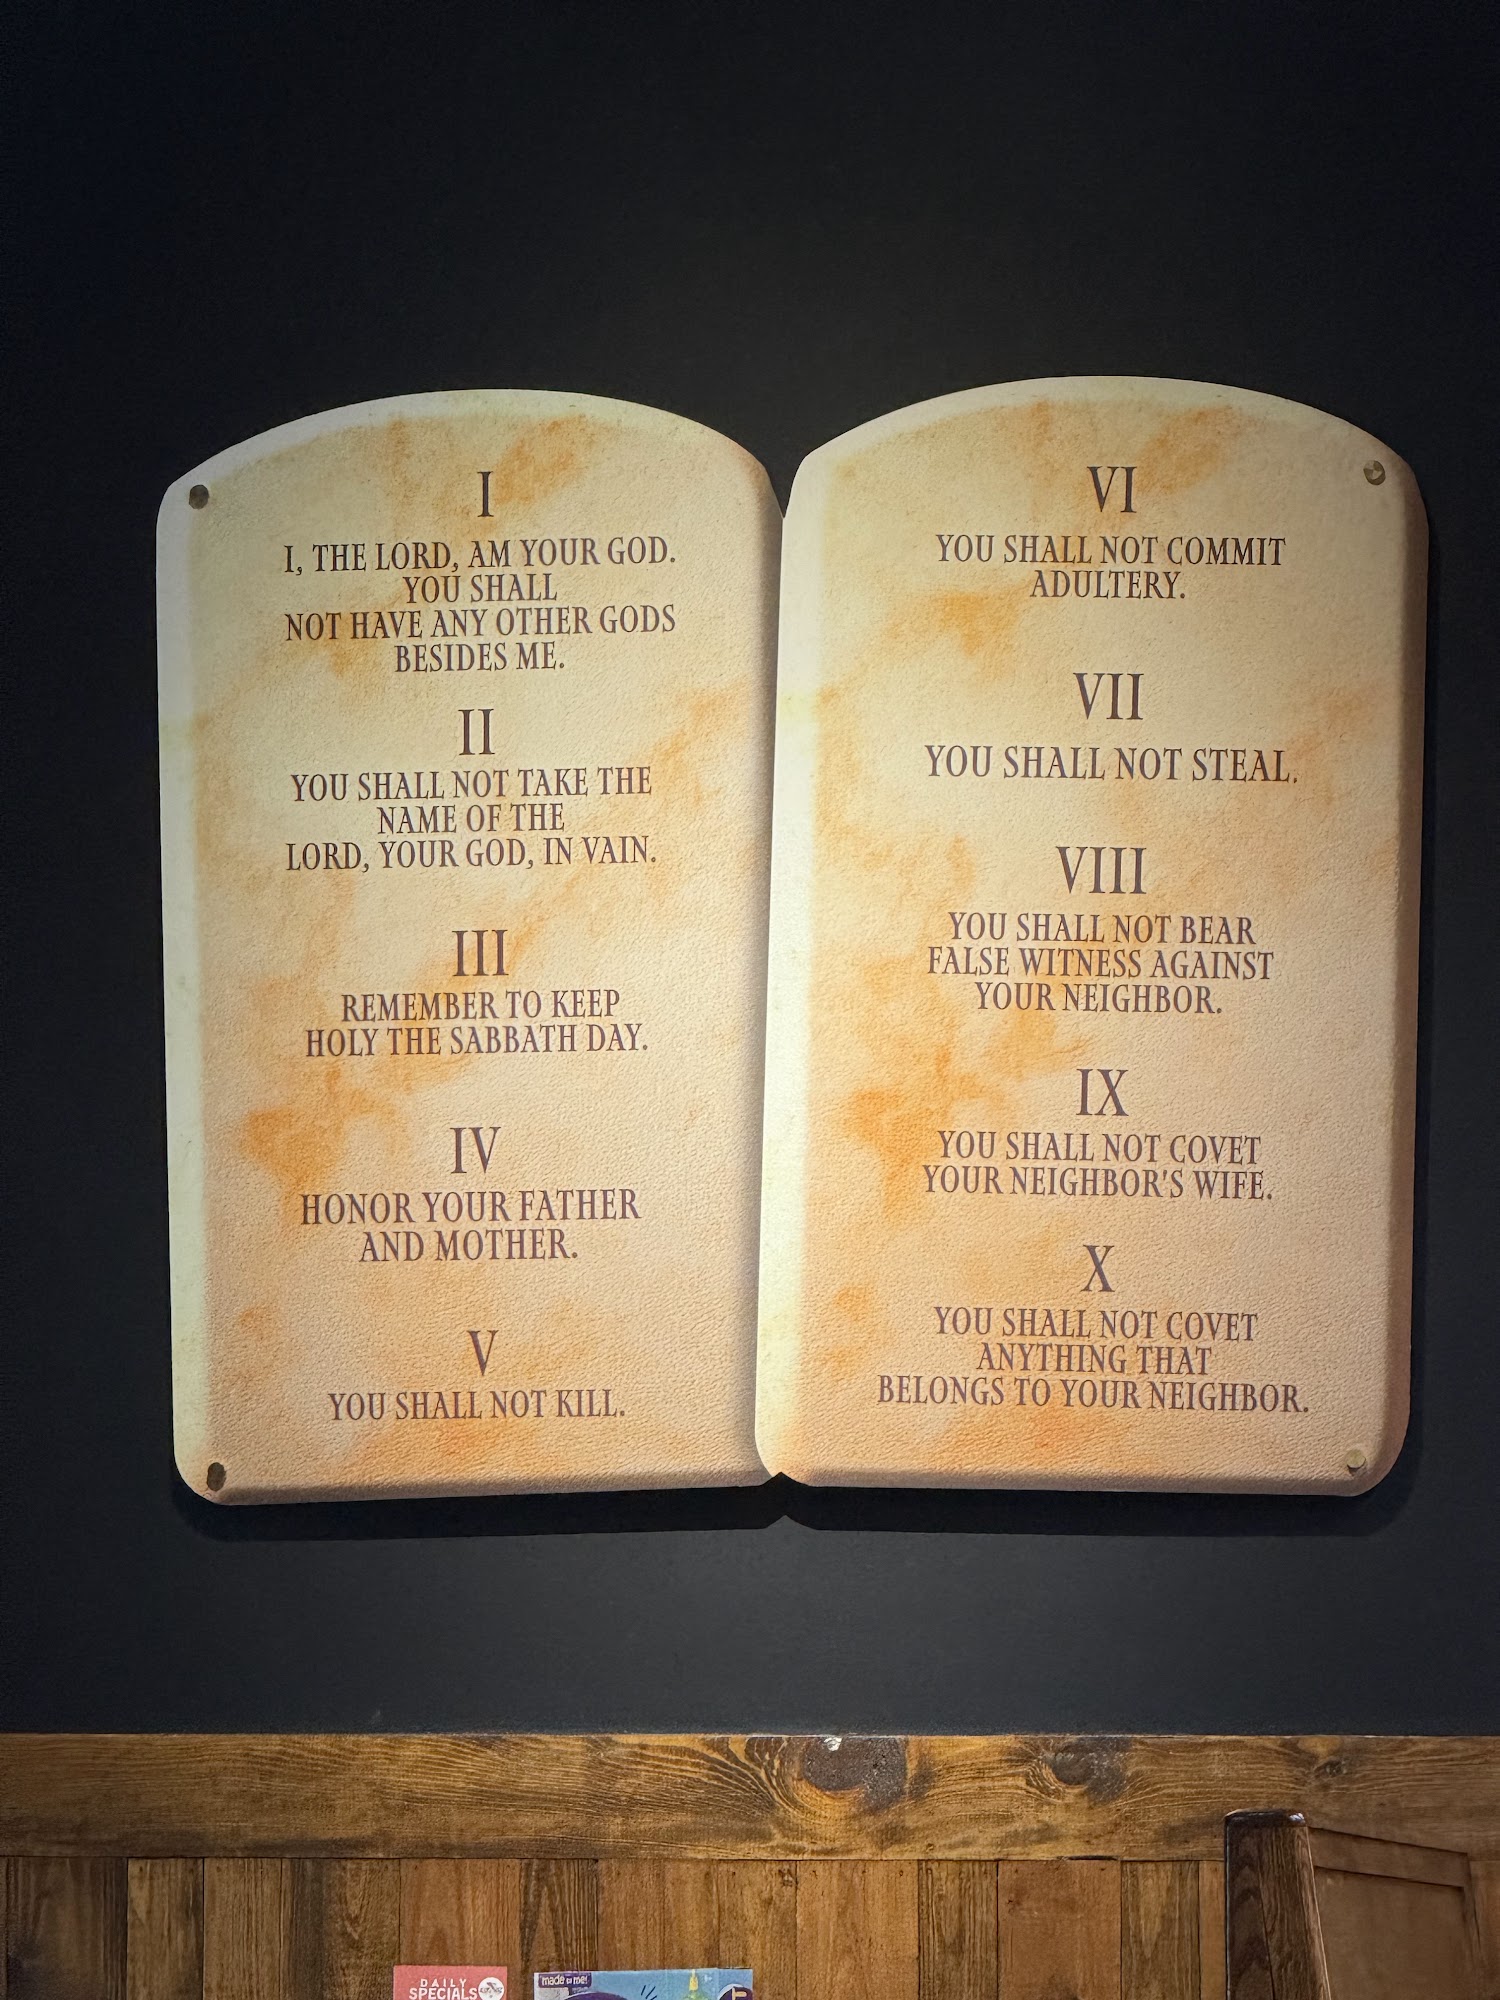 I
I, THE LORD, AM YOUR GOD.
YOU SHALL
NOT HAVE ANY OTHER GODS
BESIDES ME.
II
YOU SHALL NOT TAKE THE
NAME OF THE
LORD, YOUR GOD, IN VAIN.
III
REMEMBER TO KEEP
HOLY THE SABBATH DAY.
IV
HONOR YOUR FATHER
AND MOTHER.
V
YOU SHALL NOT KILL.
VI
YOU SHALL NOT COMMIT
ADULTERY.
VII
YOU SHALL NOT STEAL.
VIII
YOU SHALL NOT BEAR
FALSE WITNESS AGAINST
YOUR NEIGHBOR.
IX
YOU SHALL NOT COVET
YOUR NEIGHBOR'S WIFE.
X
YOU SHALL NOT COVET
ANYTHING THAT
BELONGS TO YOUR NEIGHBOR.
DAILY
SPECIALS
made to me!